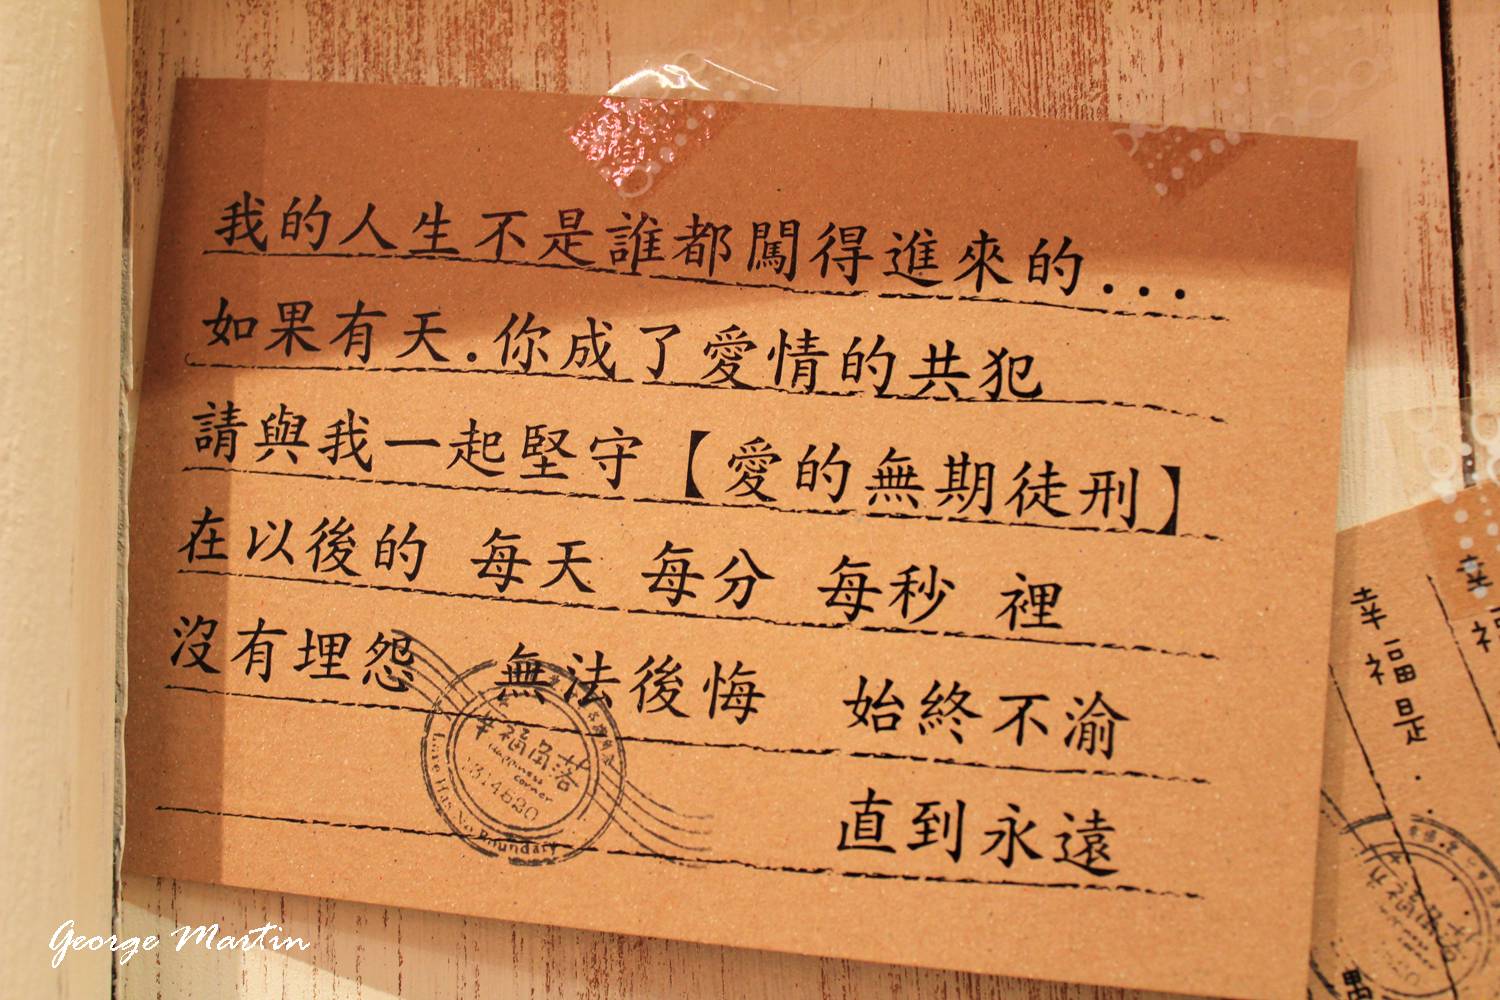 我的人生不是誰都闖得進來的...
如果有天.你成了愛情的共犯
請與我一起堅守【愛的無期徒刑】
在以後的 每天 每分 每秒 裡
沒有埋怨 無法後悔 始終不渝
直到永遠
幸福角落
Happiness corner
1314520
Love Has No Boundary
幸福是..
幸福
George Martin